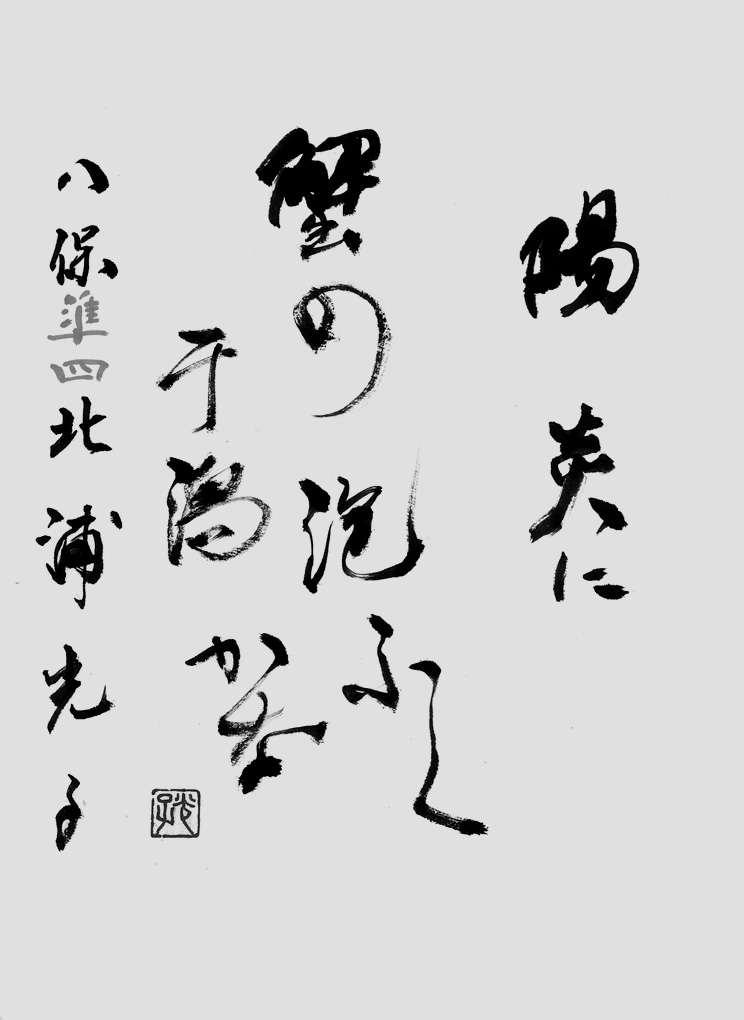 陽炎に
蟹の泡ふく
干潟かな
八保準四北浦光子